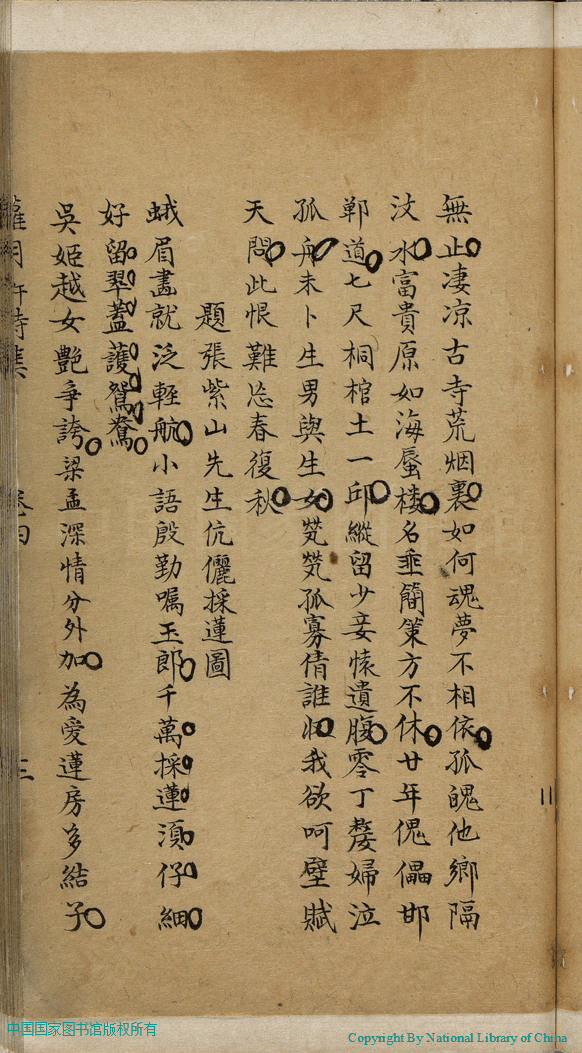 無止凄凉古寺荒烟裏如何魂夢不相依孤魄他鄉隔
汶水富貴原如海蜃楼名垂簡策方不休廿年傀儡邯
鄲道七尺桐棺土一邱縱留少妾懷遺腹零丁嫠婦泣
孤舟未卜生男與生女煢煢孤寡倩誰归我欲呵壁賦
天問此恨難忘春復秋
題張紫山先生伉儷採蓮圖
蛾眉畫就泛輕航小語殷勤嘱玉郎千萬採蓮湏仔細
好留翠蓋護鴛鴦
吳姬越女艷爭誇梁孟深情分外加為愛蓮房多結子
三
中国国家图书馆版权所有
Copyright By National Library of China